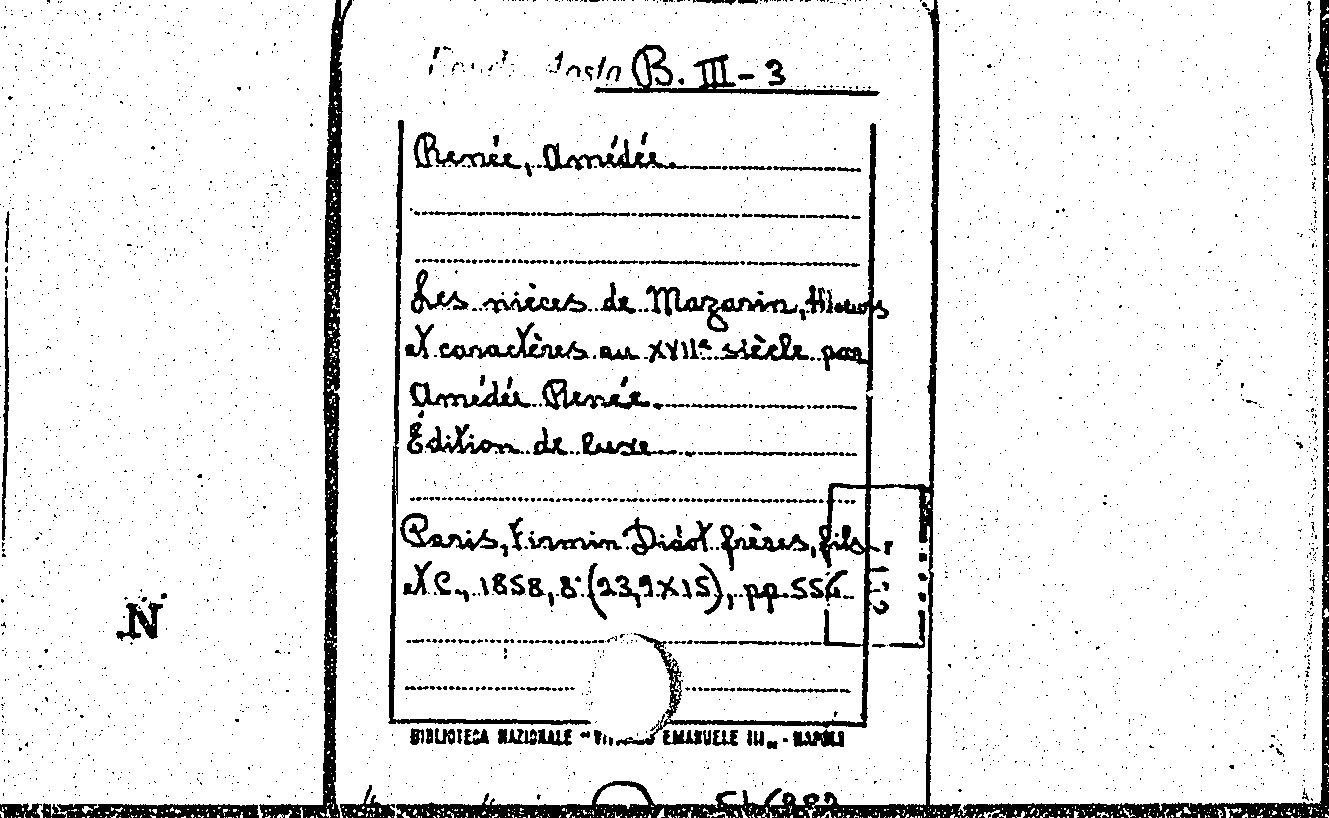 Aosta B. III - 3
Renée, Amédée.
Les nièces de Mazarin, Moeurs
et caractères au XVIIe siècle par
Amédée Renée.
Édition de luxe
Paris, Firmin Didot frères, fils
et C., 1858, 8° (23,9X15), pp. 556
N
BIBLIOTECA NAZIONALE "VITTORIO EMANUELE III" - NAPOLI